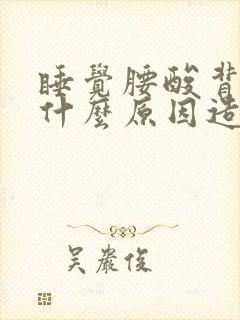 睡覺腰酸背
什麼原因造
吴嚴俊